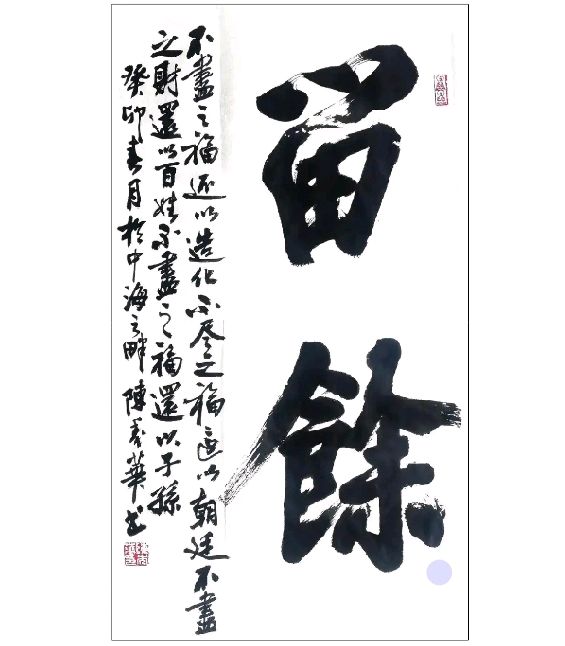 留餘
不盡之福还以造化不尽之福还以朝廷不盡
之財還以百姓不盡之福還以子孫
癸卯春月於中海之畔陳秀華书